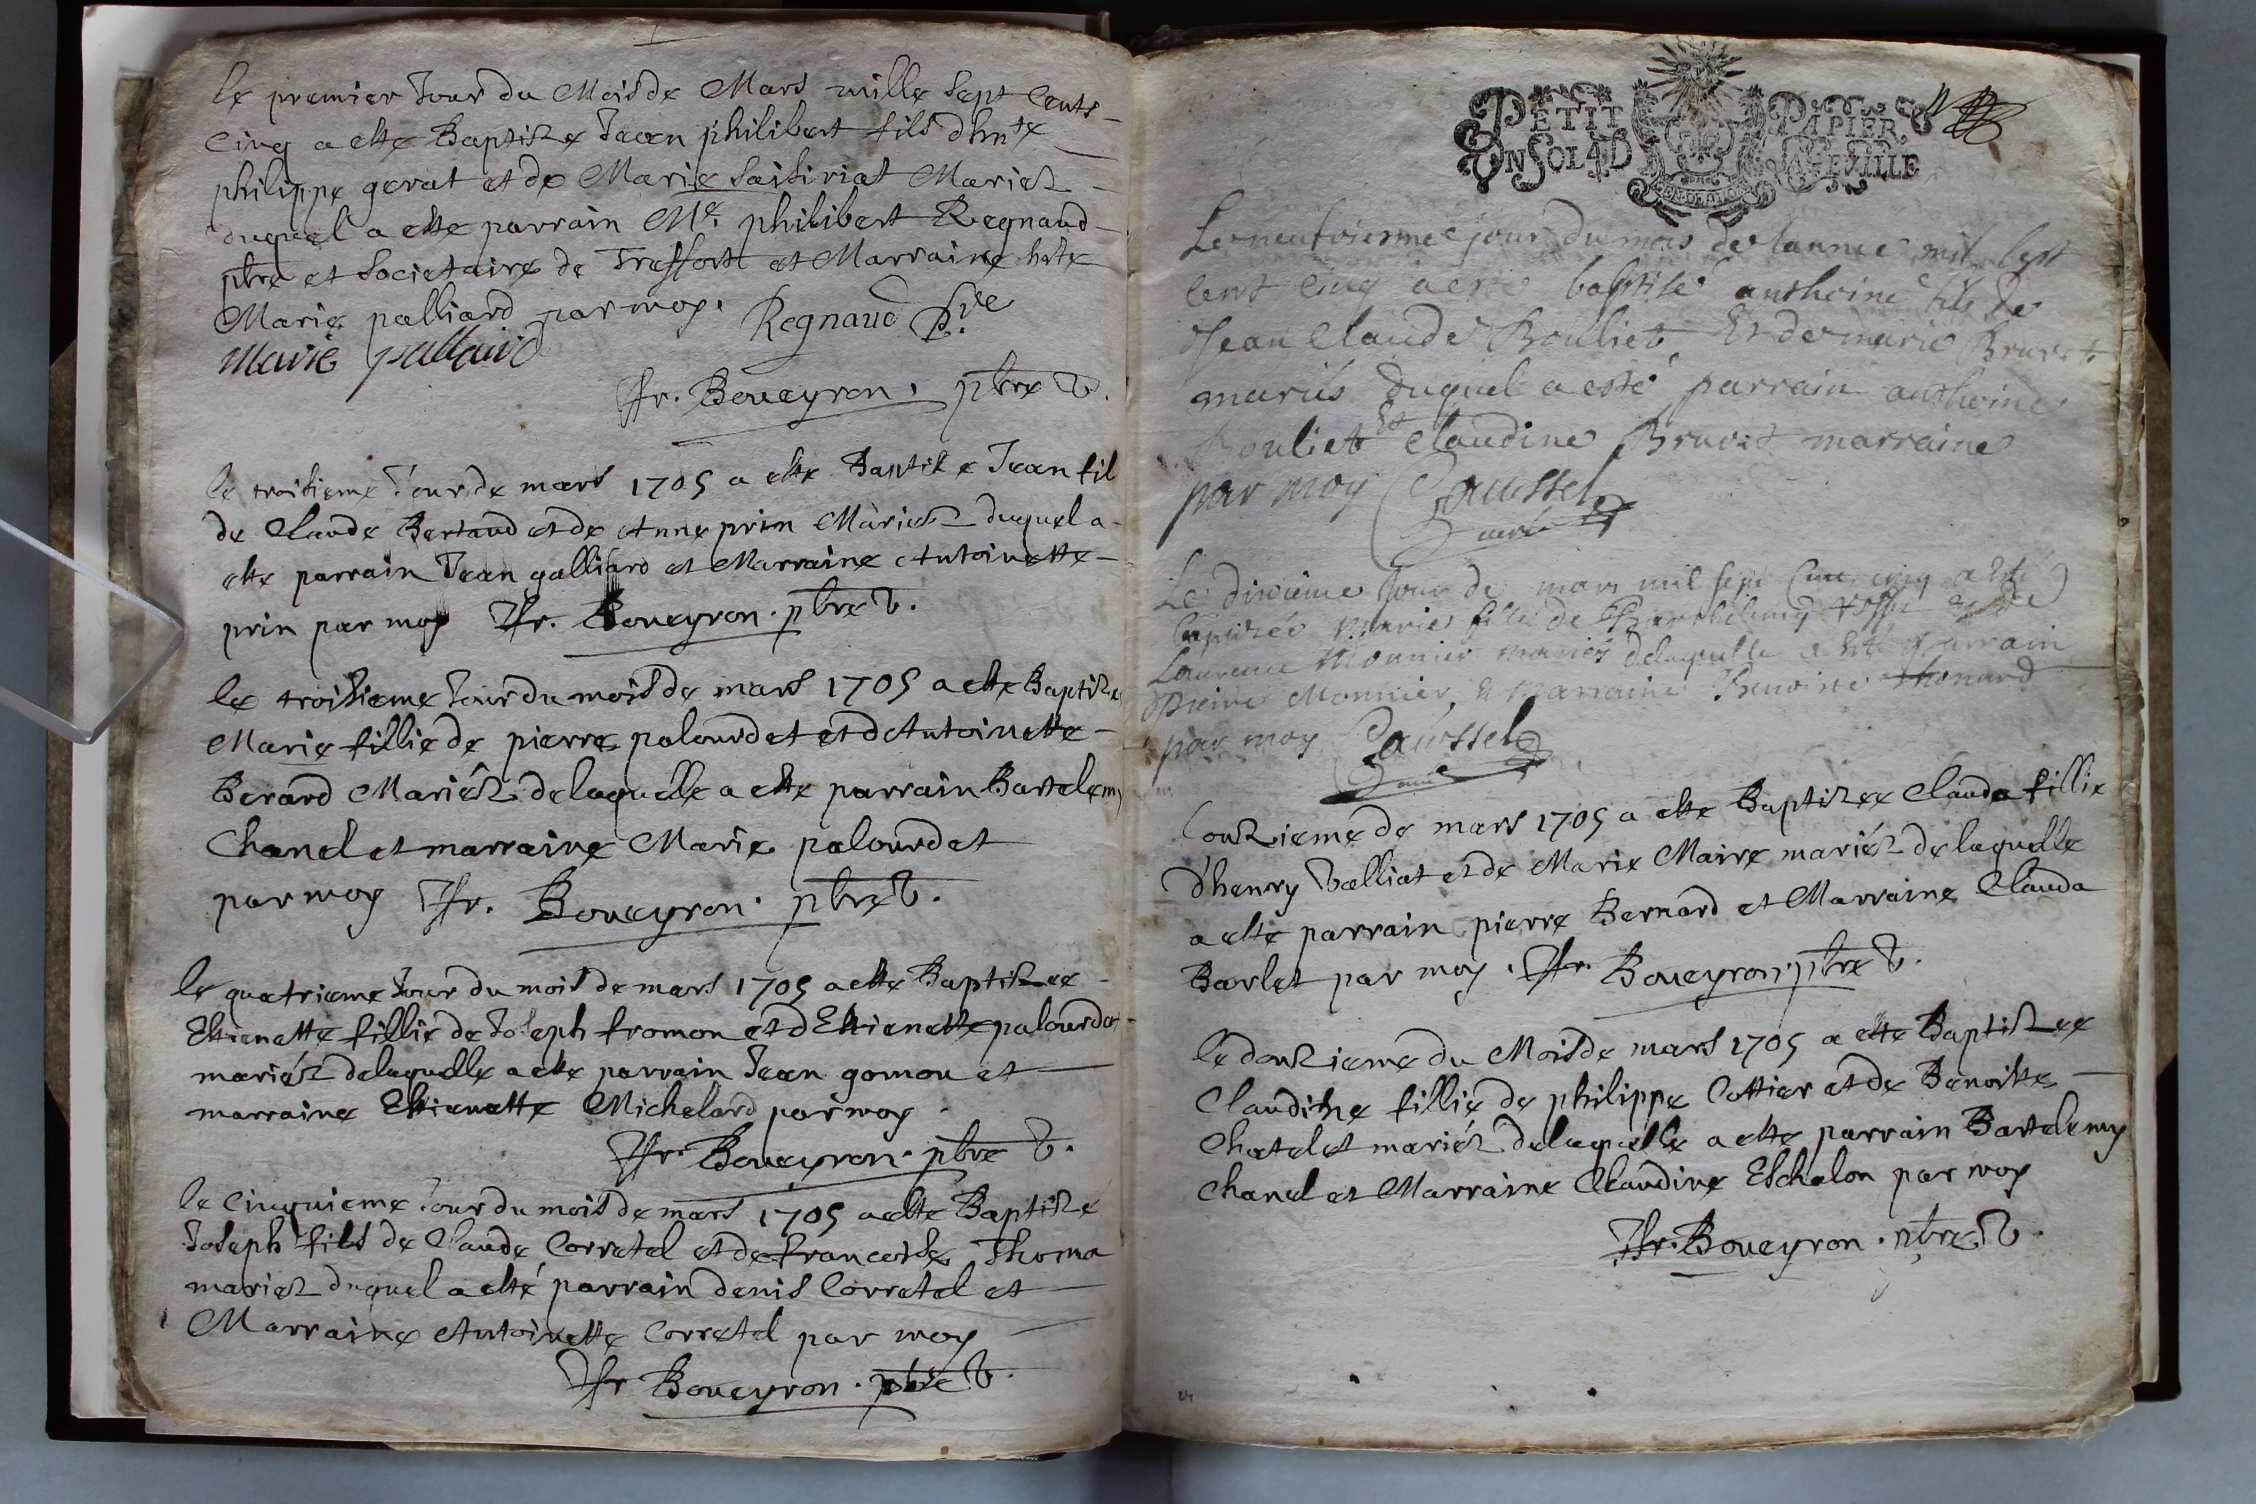 le premier Jour du Mois de Mars mille sept cents
cinq a este Baptize Jean philibert fils dhnte
philippe gerat et de Marie Mariez
duquel a este parrain Mr. philibert Regnaud
pbre et societaire de Treffort et Marraine hte
Marie palliard par moy. Regnaud pbre
Marie palliard
fr. Boueyron. pbre V.
le troisieme Jour de mars 1705 a este Baptize Jean fil
de Claude Bertaud et de Anne prin Mariez duquel a
este parrain Jean galliard et Marraine Antoinette
prin par moy fr. Boueyron. pbre V.
le troisieme Jour du mois de mars 1705 a este Baptize
Marie fillie de pierre palourdet et dAntoinette
Berard Mariéz delaquelle a este parrain Bartelemy
Chanel et marraine Marie palourdet
par moy fr. Boueyron. pbre V.
le quatrieme Jour du mois de mars 1705 a este Baptizee
Estienette fillie de Joseph fromon et dEstienette palourdet
mariéz delaquelle a este parrain Jean gomon et
marraine Estienette Michelard par moy
fr. Boueyron. pbre V.
le Cinquieme Jour du mois de mars 1705 a este Baptizé
Joseph fils de Claude Corretel et de francoise Thoma
mariez duquel a esté parrain denis Corretel et
Marraine Antoinette Corretel par moy
fr Boueyron. pbre V.
PETIT PAPIER
UN SOL 4 D LA FEUILLE
Le neufviesme jour du mois de lannee mil sept
cent cinq a esté baptisé anthoine fils de
Jean Claude Bouliet Et de marie Bruret
mariés duquel a esté parrain anthoine
Bouliet Et Claudine Bruret marraine
par moy Gaussel
curé
Le dixieme Jour de mars mil sept cent cinq a esté
baptizée Marie fille de Barthelemy et de
Laurence Monnier mariés delaquelle a esté parrain
Pierre Monnier, & Marraine Benoiste Thonard
par moy Gaussel
curé
Lonzieme de mars 1705 a este Baptizee Clauda fillie
dhenry Valliat et de Marie Maire mariéz de laquelle
a este parrain pierre Bernard et Marraine Clauda
Barlet par moy. fr. Boueyron. pbre V.
le douzieme du Mois de mars 1705 a este Baptizee
Claudine fillie de philippe Cottier et de Benoiste
Chatelet mariéz delaquelle a este parrain Bartelemy
Chanel et Marraine Claudine Eschalon par moy
fr. Boueyron. pbre V.